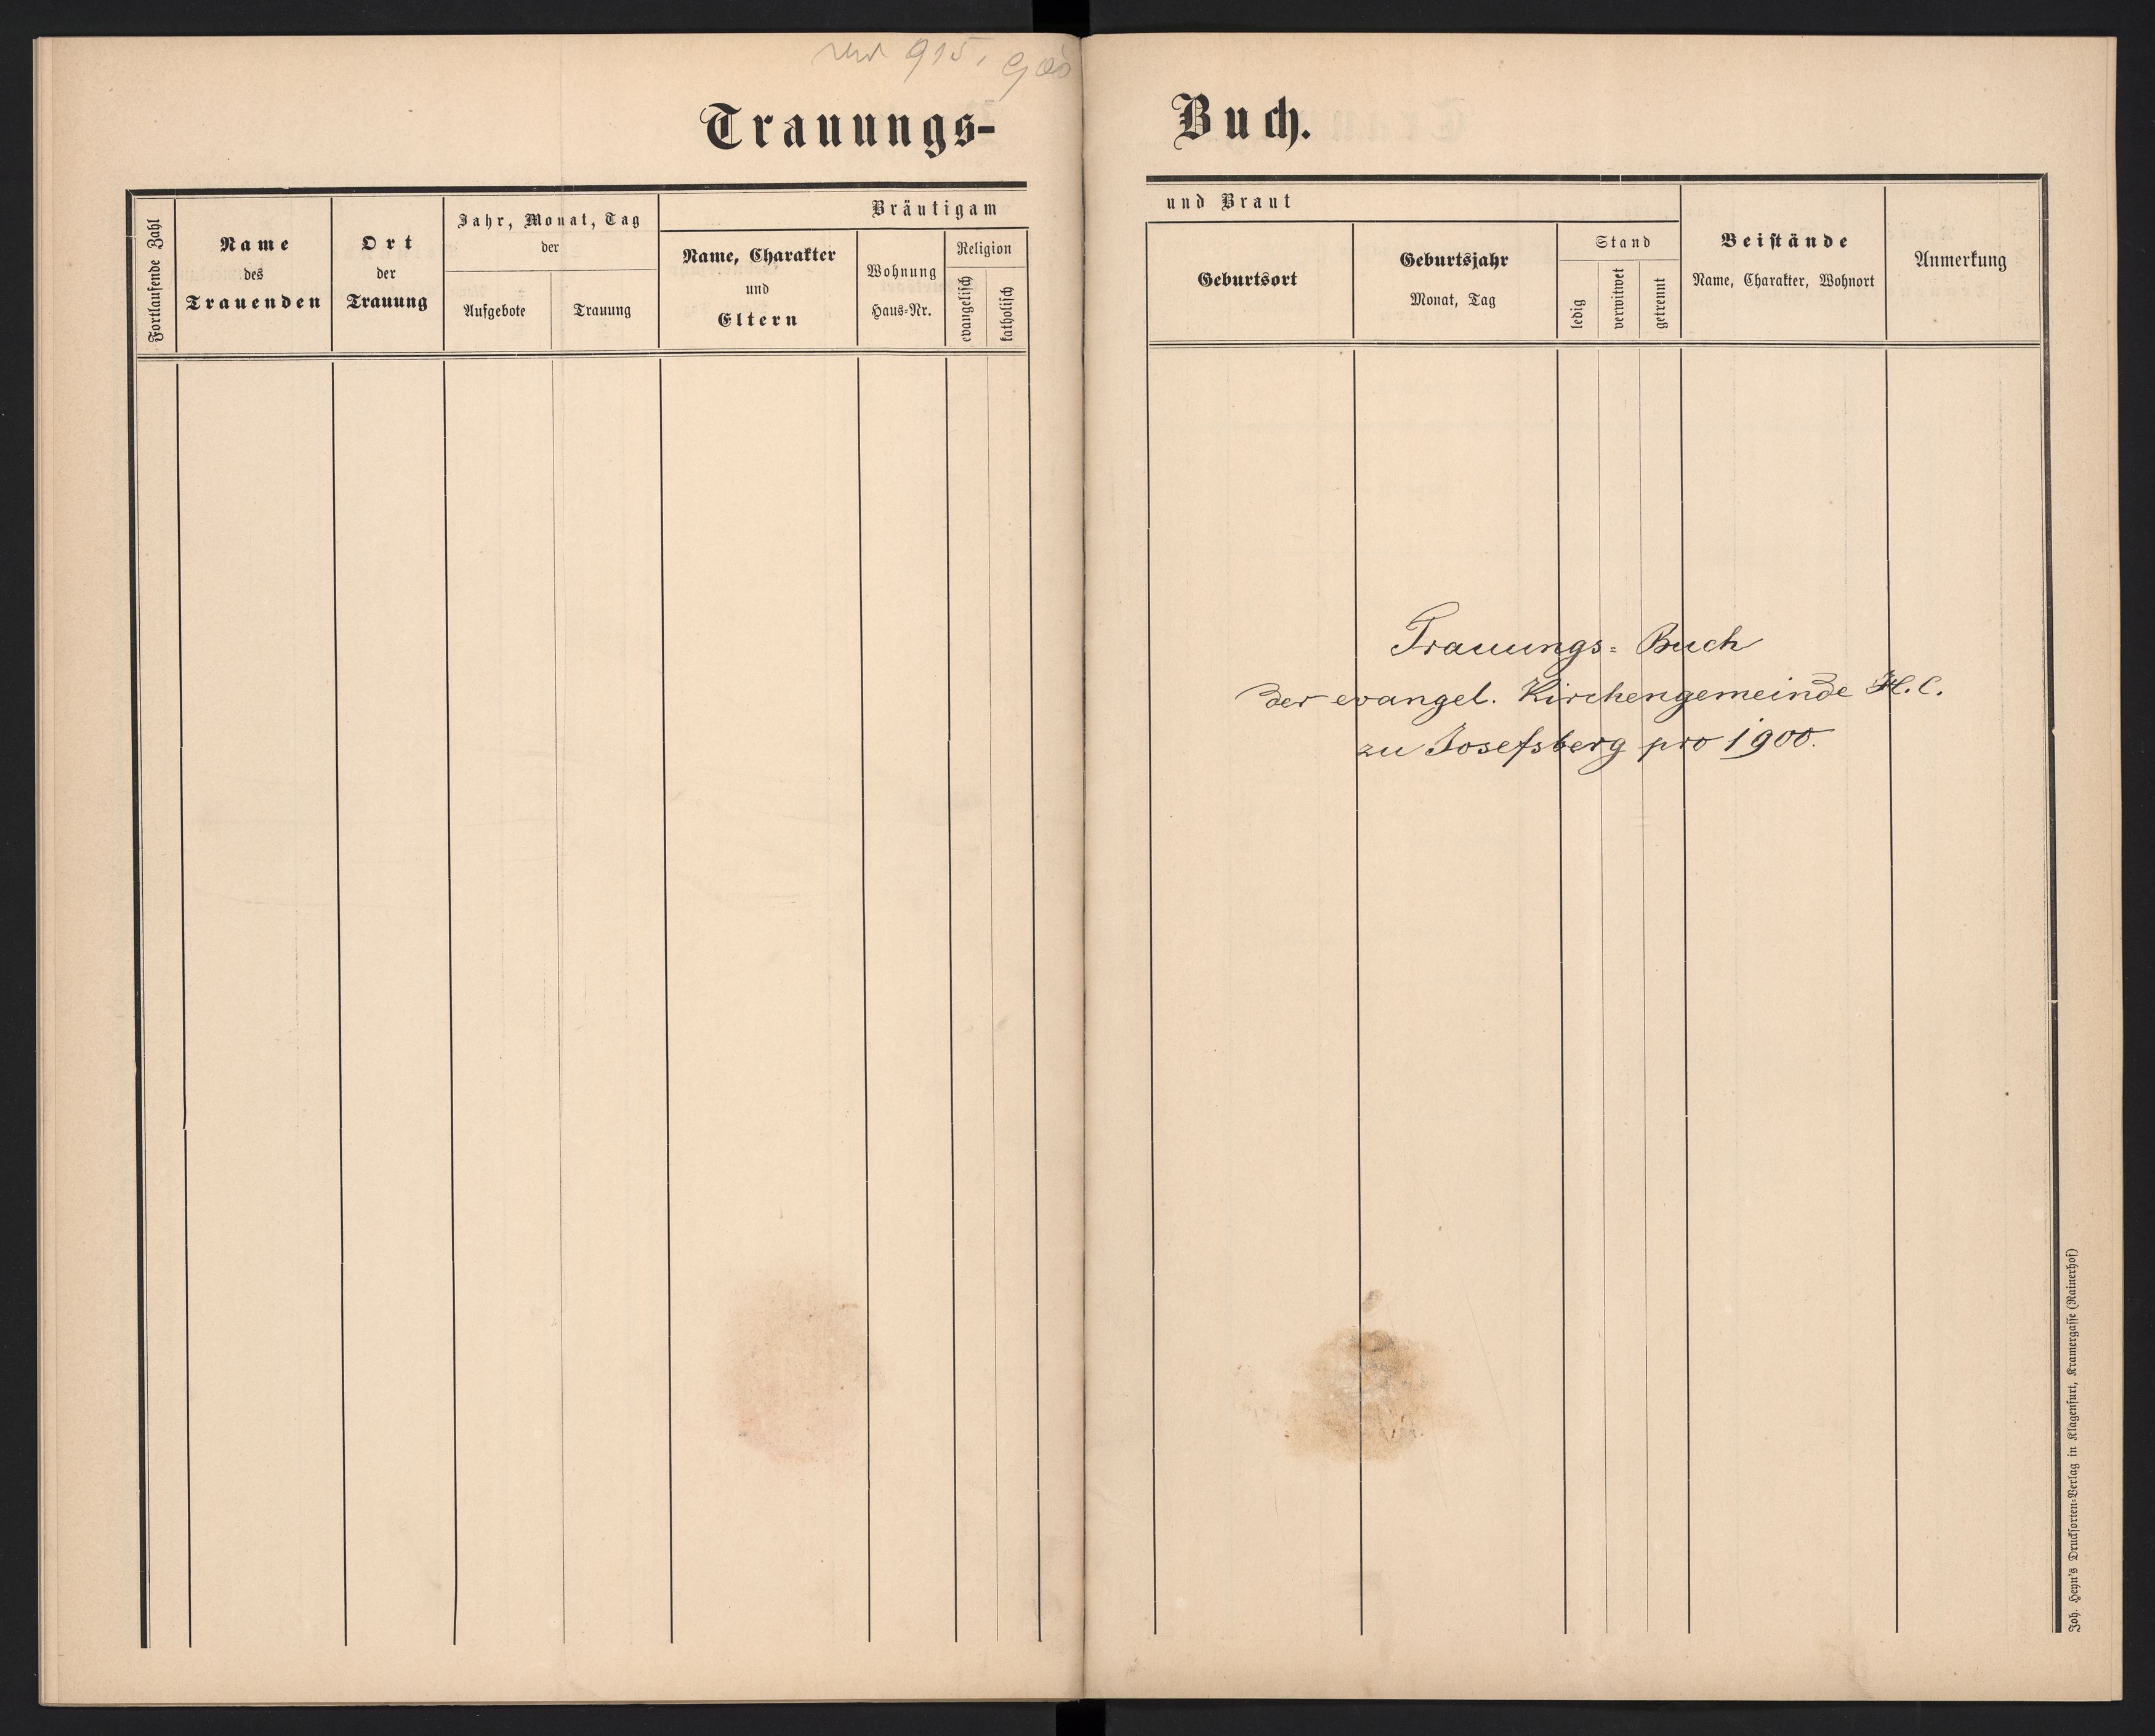 915,
Trauungs-
Buch.
Fortlaufende Zahl
Name
des
Trauenden
Ort
der
Trauung
Jahr, Monat, Tag
der
Aufgebote
Trauung
Bräutigam
Name, Charakter
und
Eltern
Wohnung
Haus-Nr.
Religion
evangelisch
katholisch
und Braut
Geburtsort
Geburtsjahr
Monat, Tag
Stand
ledig
verwitwet
getrennt
Beistände
Name, Charakter, Wohnort
Anmerkung
Trauungs- Buch
der evangel. Kirchengemeinde H. C.
zu Josefsberg pro 1900.
Joh. Heyn's Drucksorten-Verlag in Klagenfurt, Kramergasse (Rainerhof)